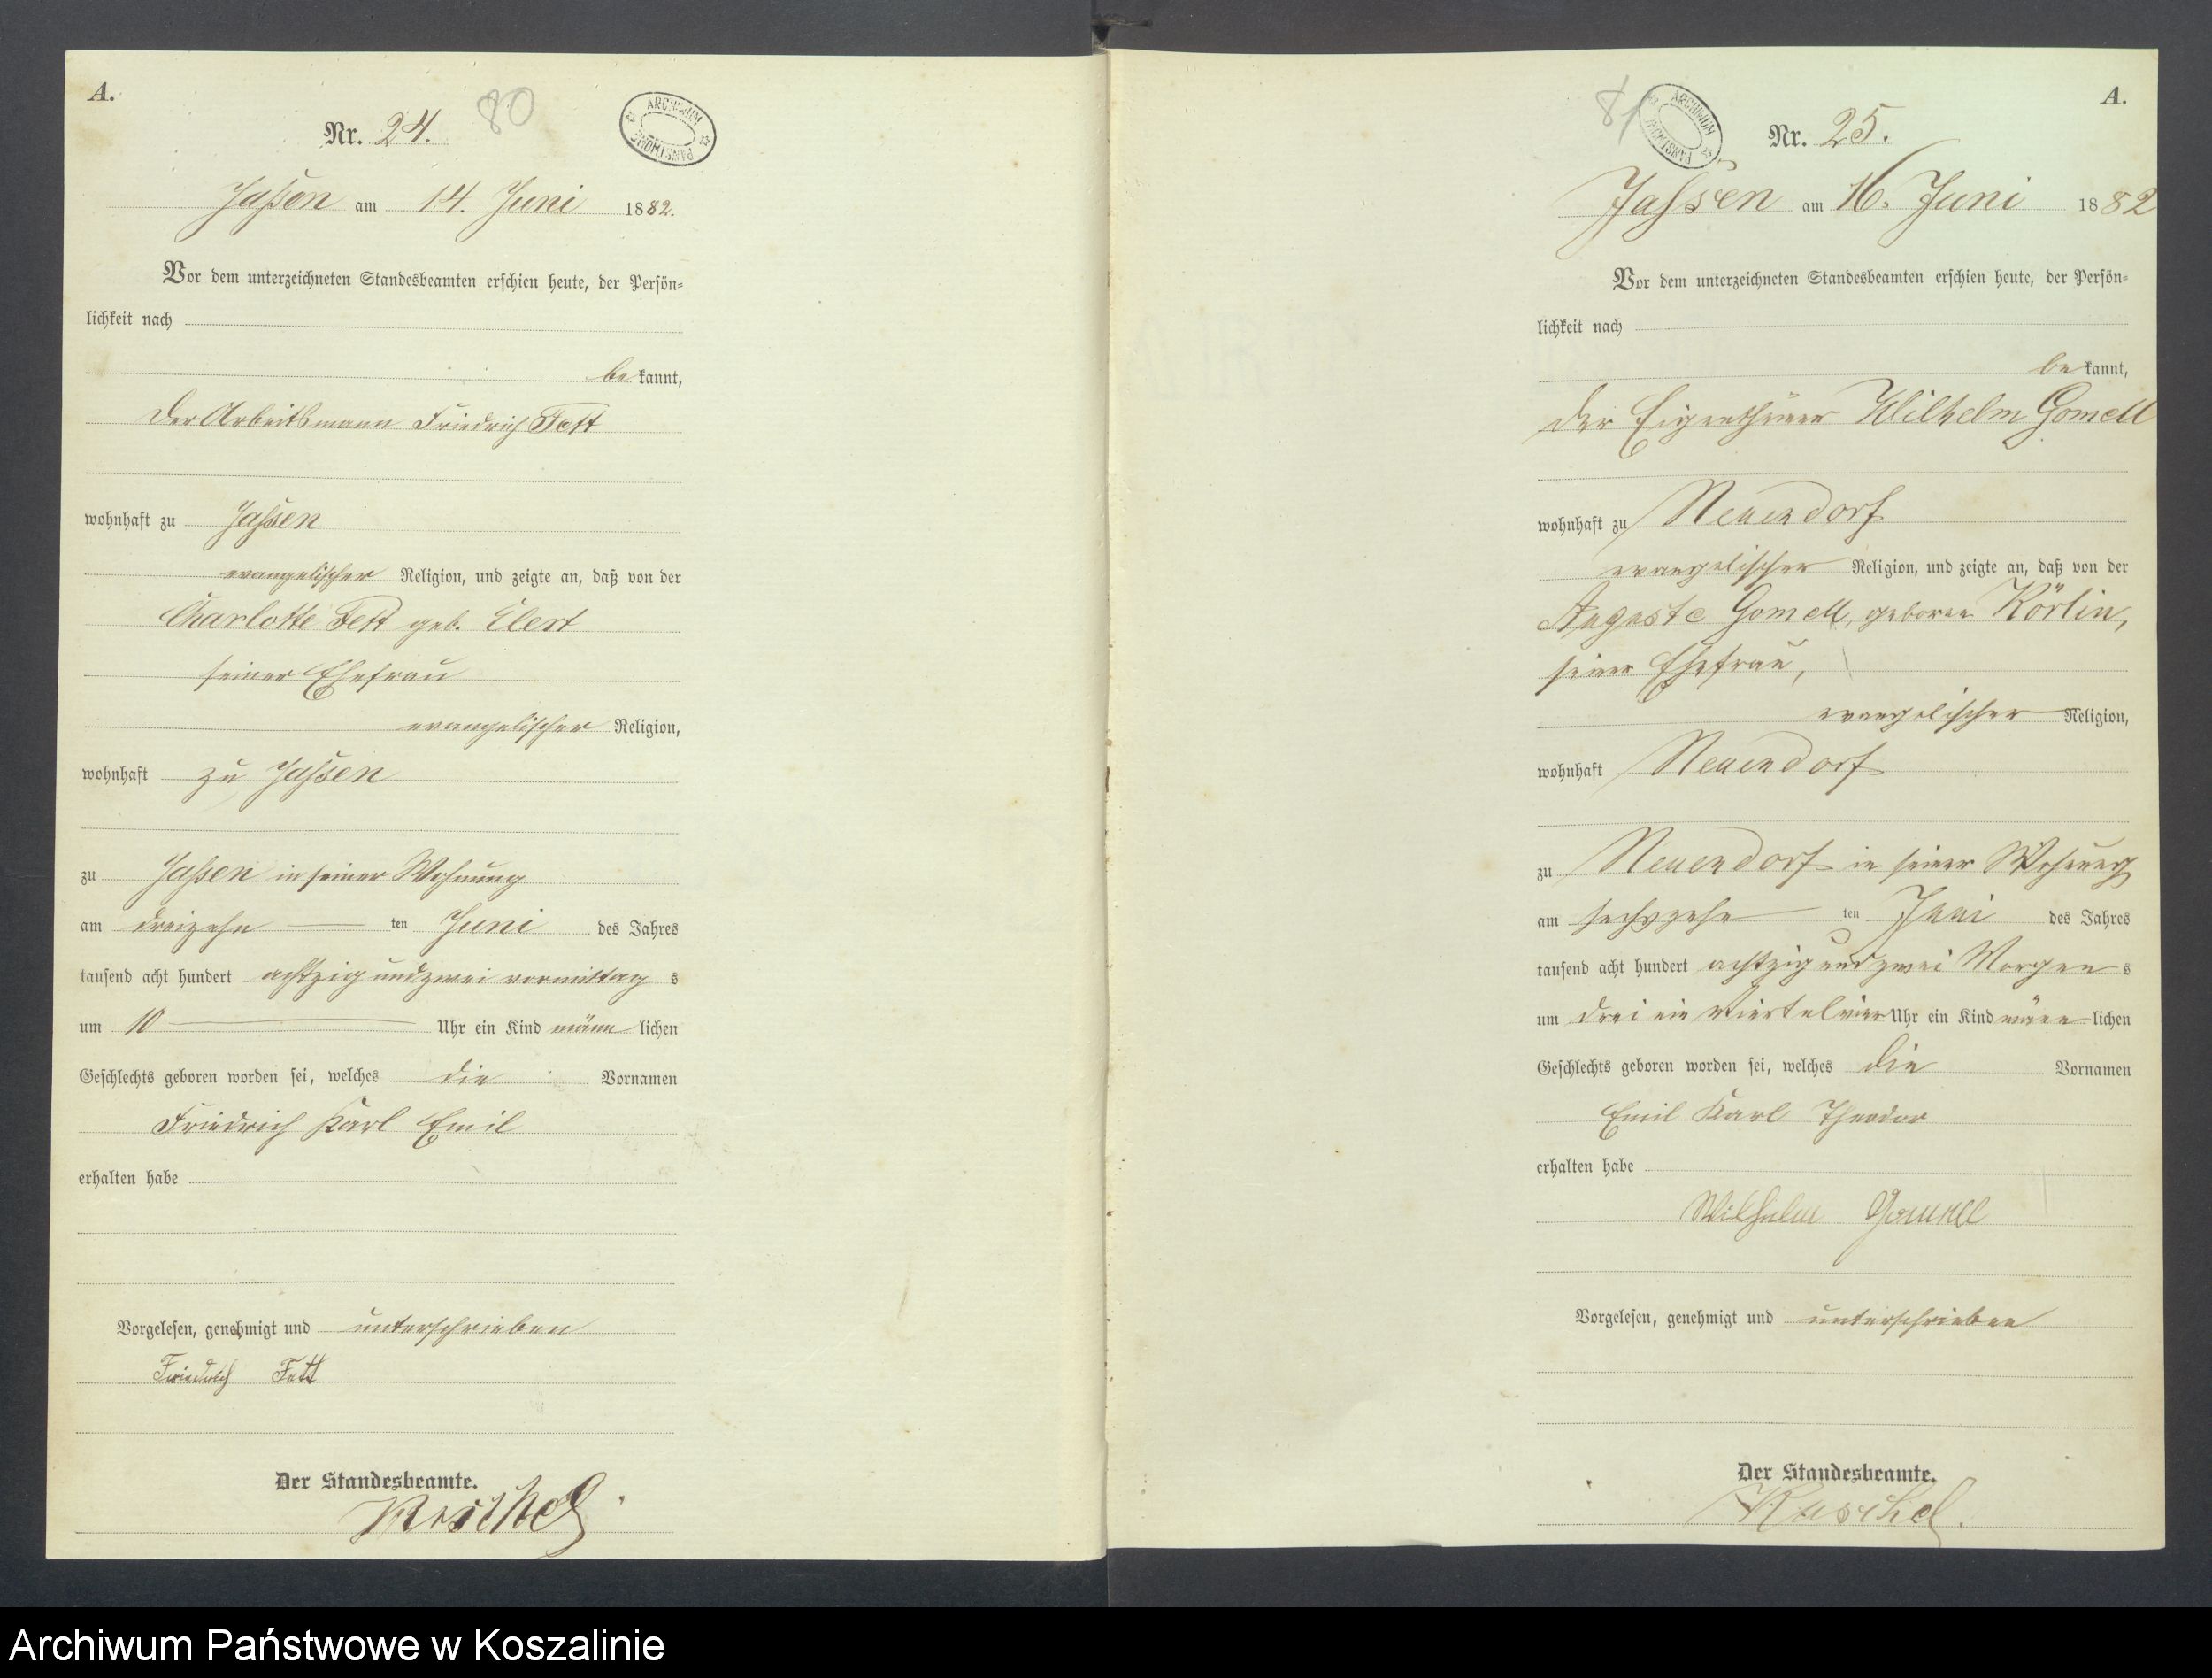 A.
Nr. 24.
80
ARCHIWUM PAŃSTWOWE
Jassen am 14. Juni 1882.
Vor dem unterzeichneten Standesbeamten erschien heute, der Persön-
lichkeit nach
be kannt,
Der Arbeitsmann Friedrich Fett
wohnhaft zu Jassen
evangelischer Religion, und zeigte an, daß von der
Charlotte Fett geb. Elert
seiner Ehefrau
evangelischer Religion,
wohnhaft zu Jassen
zu Jassen in seiner Wohnung
am dreizehn ten Juni des Jahres
tausend acht hundert achtzig und zwei vormittag s
um 10 Uhr ein Kind männ lichen
Geschlechts geboren worden sei, welches die Vornamen
Friedrich Karl Emil
erhalten habe
Vorgelesen, genehmigt und unterschrieben
Friedrich Fett
Der Standesbeamte.
Ruschel
81
ARCHIWUM PAŃSTWOWE
A.
Nr. 25.
Jassen am 16. Juni 1882
Vor dem unterzeichneten Standesbeamten erschien heute, der Persön-
lichkeit nach
be kannt,
der Eigenthümer Wilhelm Gomell
wohnhaft zu Neuendorf
evangelischer Religion, und zeigte an, daß von der
Auguste Gomell, geboren Körlin,
seiner Ehefrau,
evangelischer Religion,
wohnhaft Neuendorf
zu Neuendorf in seiner Wohnung
am sechszehn ten Juni des Jahres
tausend acht hundert achtzig und zwei Morgen s
um drei ein viertel vier Uhr ein Kind männ lichen
Geschlechts geboren worden sei, welches die Vornamen
Emil Karl Theodor
erhalten habe
Wilhelm Gomell
Vorgelesen, genehmigt und unterschrieben
Der Standesbeamte.
Ruschel.
Archiwum Państwowe w Koszalinie